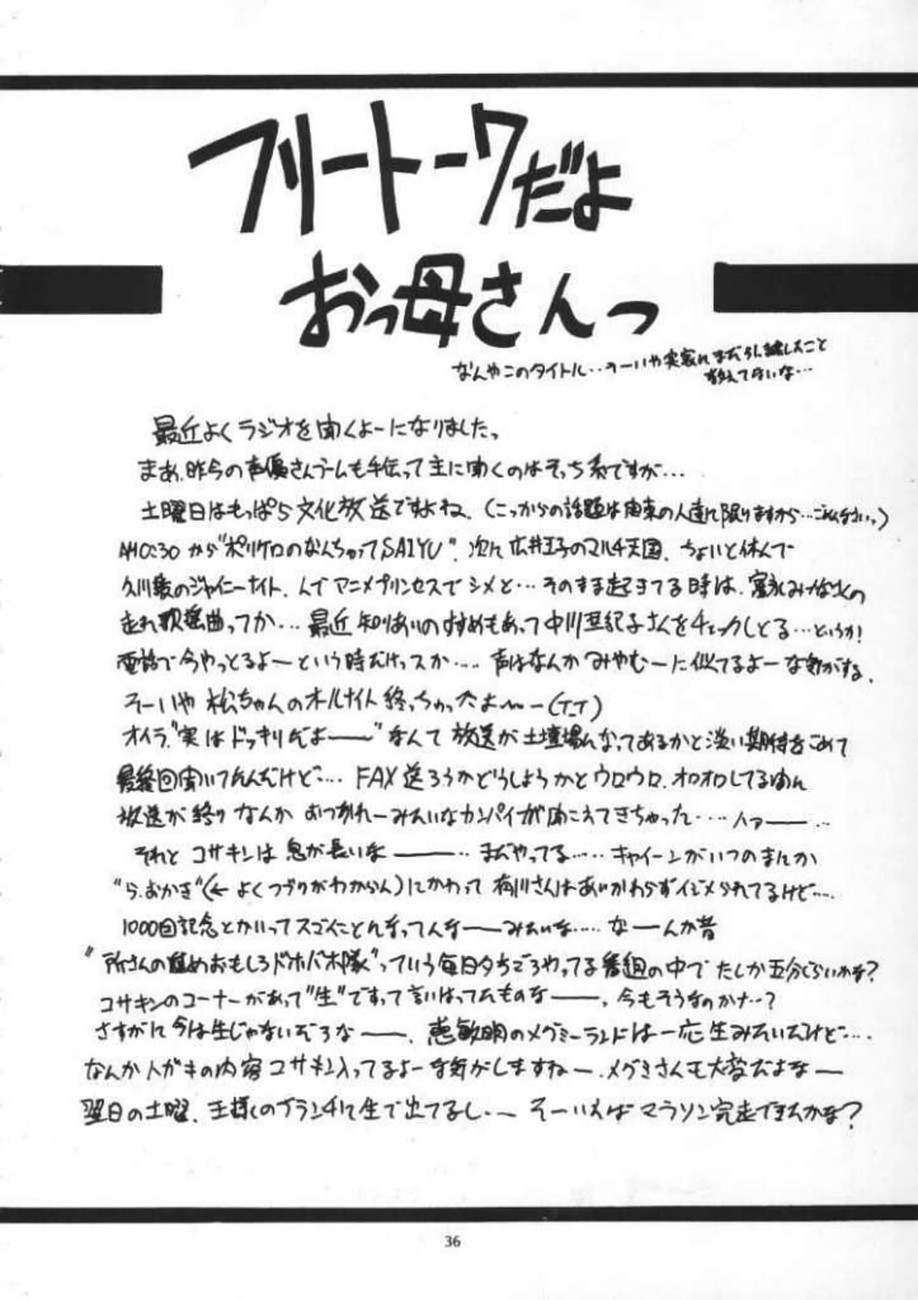 フリートークだよ
おっ母さんっ
なんやこのタイトル・・そーいや実家にまだ引っ越したこと
教えてないな・・・
最近よくラジオを聞くよーになりました。
まあ、昨今の声優さんブームも手伝って主に聞くのはそっち系ですが・・・
土曜日はもっぱら文化放送ですよね、(こっからの話題は関東の人達に限りますから…ごめんなさいっ)
AM0:30から"ポリケロのなんちゃってSAIYU"、次に広井王子のマルチ天国、ちょいと休んで
久川綾のシャイニーナイト、んでアニメプリンセスでシメと・・・そのまま起きてる時は、富永みーなさんの
走れ歌謡曲ってか・・・最近知りあいのすすめもあって中川亜紀子さんをチェックしとる・・・というか!
電話で今やっとるよーという時だけっスか・・・・声はなんかみやむーに似てるよーな気がする。
そーいや松ちゃんのオールナイト終っちゃったよ〜ー(T-T)
オイラ"実はドッキリだよ――"なんて放送が土壇場になってあるかと淡い期待をこめて
最終回聞いてたんだけど・・・FAX送ろうかどうしようかとウロウロ、オロオロしてる間に
放送が終りなんかおつかれーみたいなカンパイが聞こえてきちゃった・・・・ハァ――・・
それとコサキンは息が長いな――・・まだやってる・・・・・キャイーンがいつのまにか
"ら・おかき"(←よくつづりがわからん)にかわって有川さんはあいかわらずイジメられてるけど・・・・
1000回記念とかいってスゴイことんなってんな――みたいな・・・・・な――んか昔
"所さんの進めおもしろドホバホ隊"っていう毎日夕ちごろやってる番組の中でたしか五分くらいかな?
コサキンのコーナーがあって"生"ですって言いはってたものな――、今もそうなのかナ・・?
さすがに今は生じゃないだろな――、恵敏明のメグミーランドは一応生みたいだけど・・・・
なんかハガキの内容コサキン入ってるよーな気がしますねー、メグミさんも大変だよなー
翌日の土曜、王様のブランチで生で出てるし・〜そーいえばマラソン完走できたかな?
36